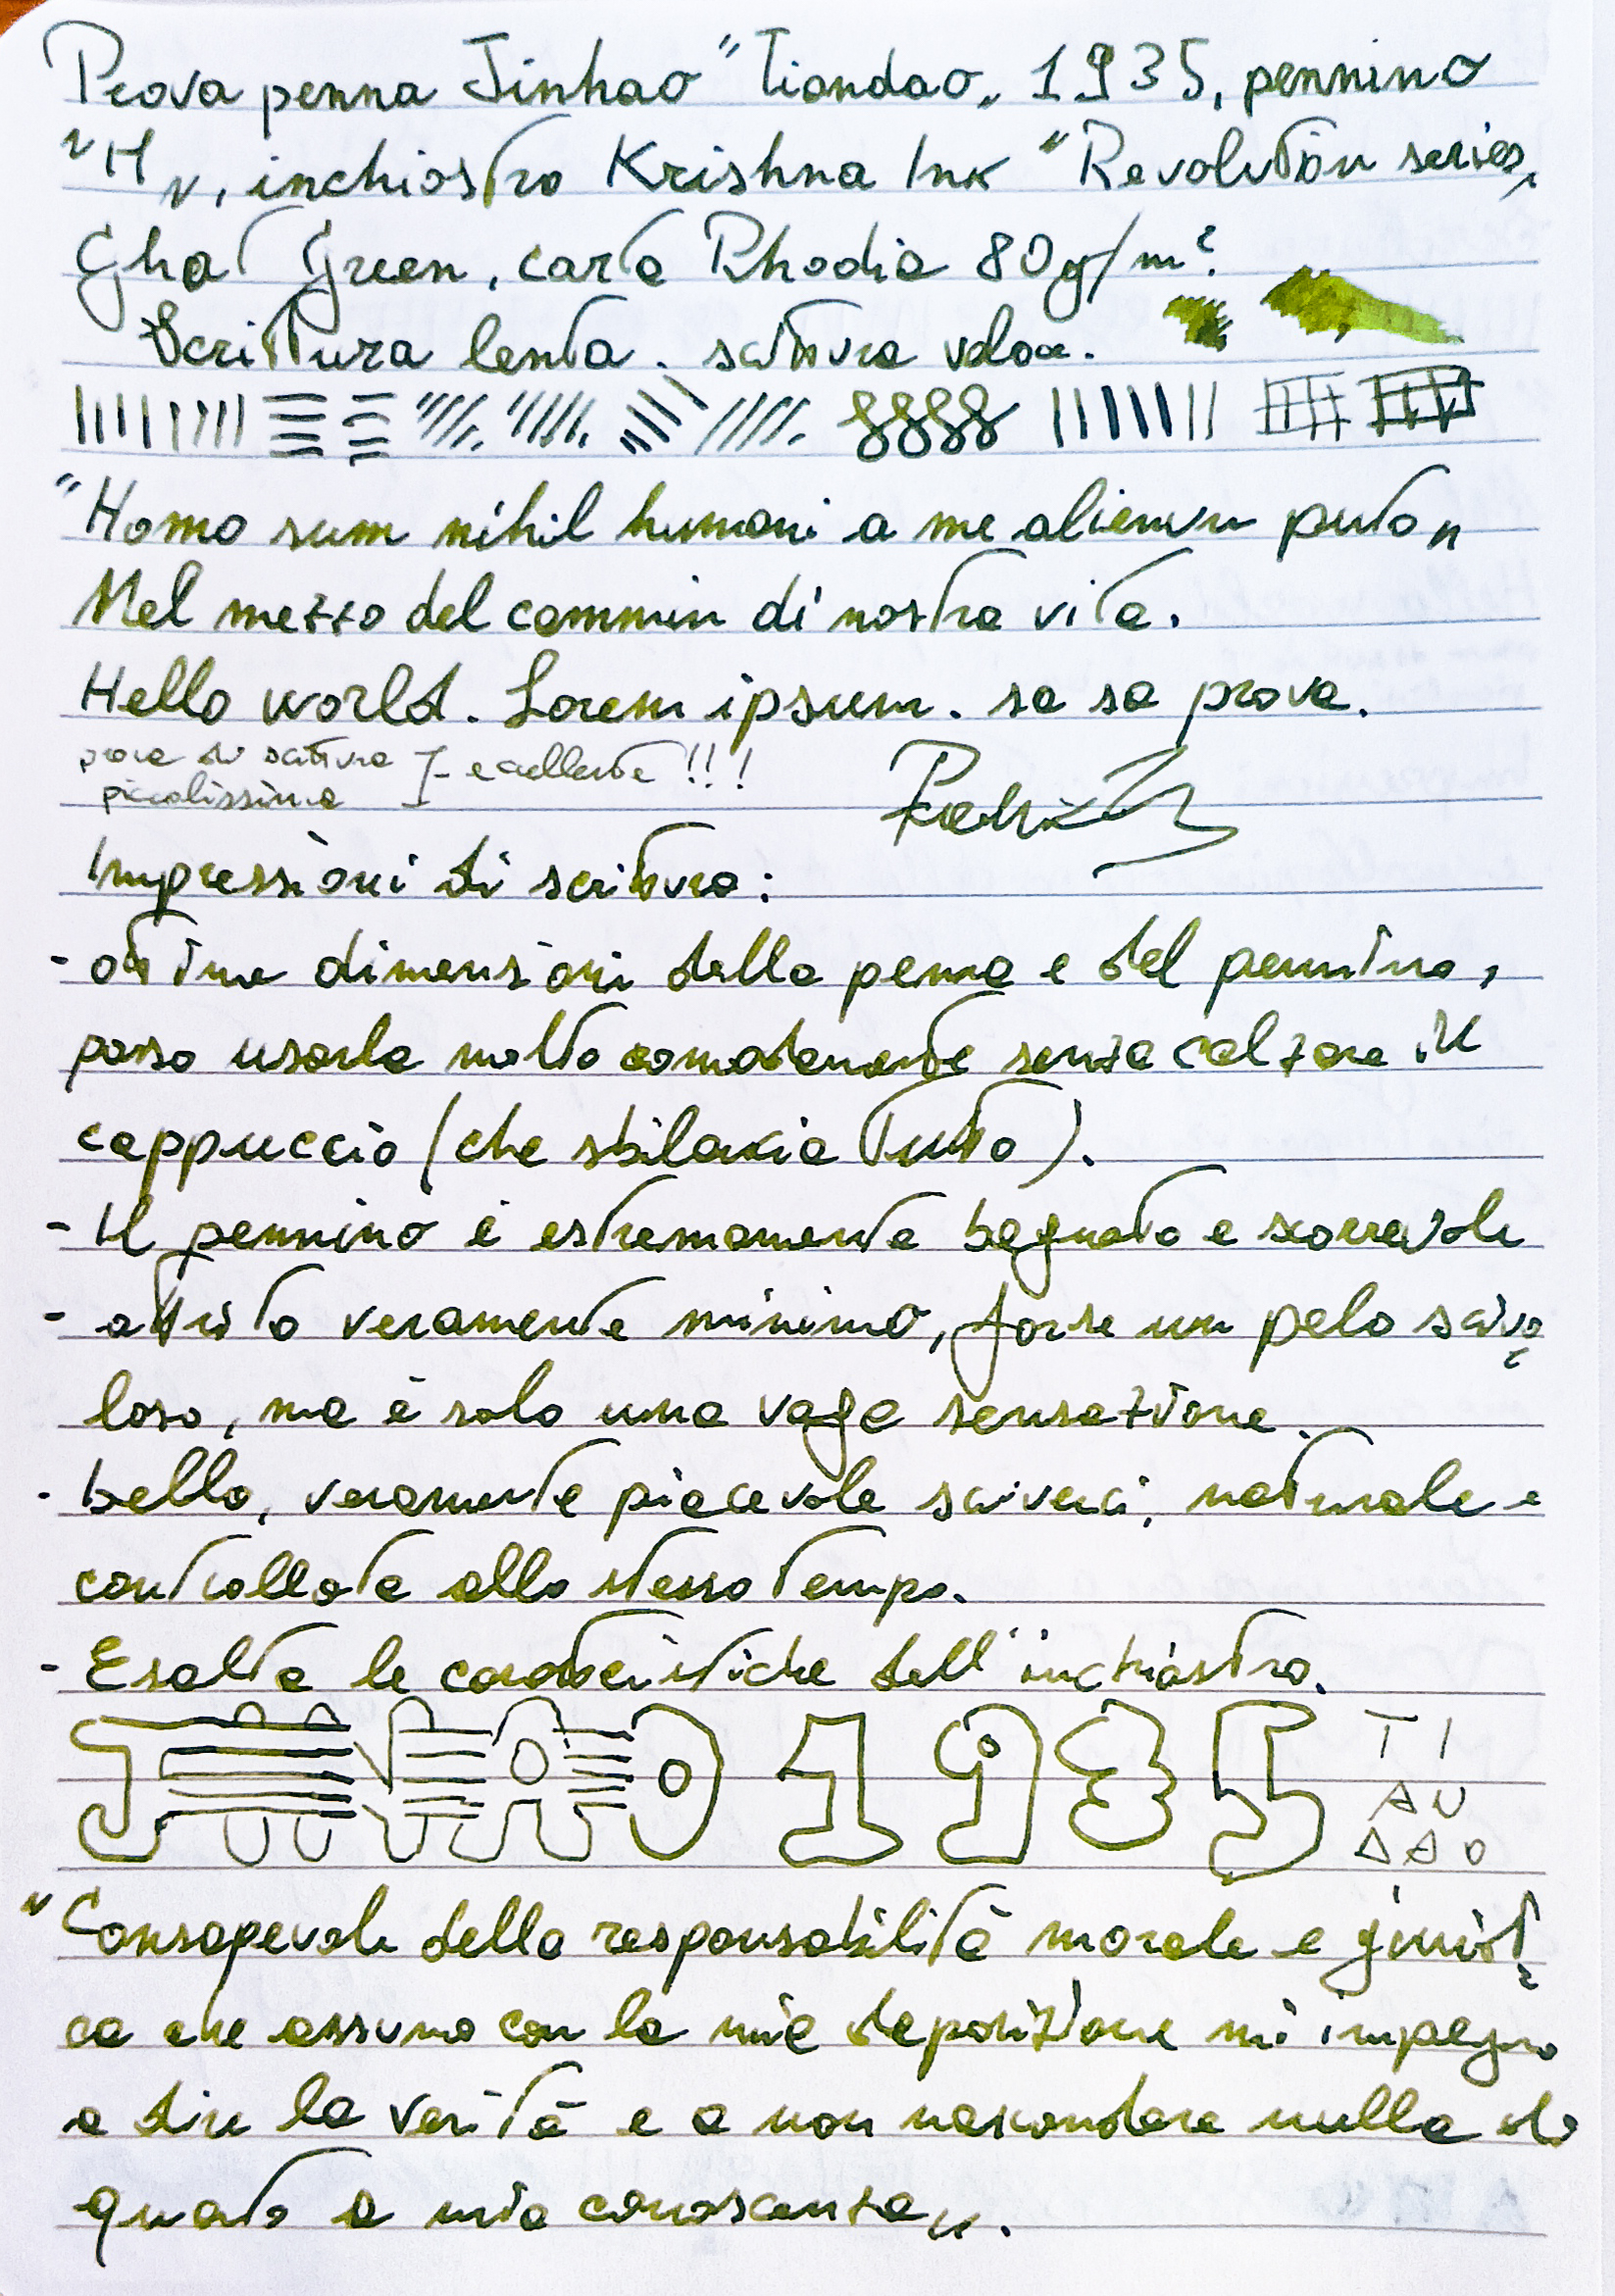 Prova penna Jinhao "Tiandao„ 1935, pennino
"M„, inchiostro Krishna Ink "Revolution series„
Ghat Green, carta Rhodia 80g/m².
Scrittura lenta. scrittura veloce.
"Homo sum nihil humani a me alienum puto„
Nel mezzo del cammin di nostra vita.
Hello world. Lorem ipsum. sa sa prova.
prova di scrittura
piccolissima } eccellente!!!
Impressioni di scrittura:
- ottime dimensioni della penna e del pennino,
posso usarla molto comodamente senza calzare il
cappuccio (che sbilancia tutto).
- Il pennino è estremamente bagnato e scorrevole
- attrito veramente minimo, forse un pelo scivo
loso, ma è solo una vaga sensazione.
- bella, veramente piacevole scriverci, naturale e
controllata allo stesso tempo.
- Esalta le caratteristiche dell'inchiostro.
1935 TI
AN
DAO
"Consapevole della responsabilità morale e giuridi
ca che assumo con la mia deposizione mi impegno
a dire la verità e a non nascondere nulla di
quanto a mia conoscenza„.